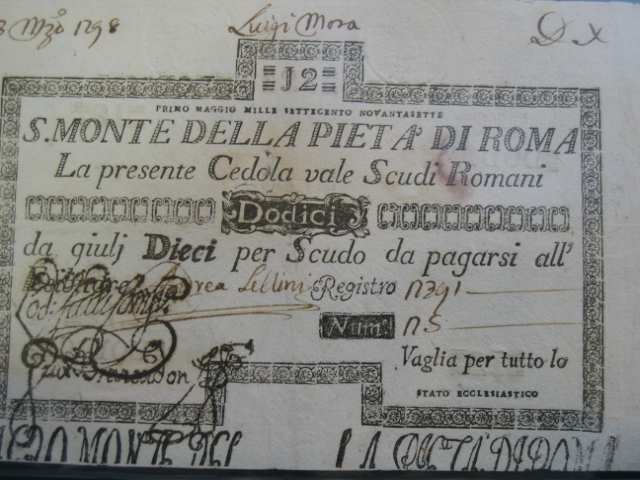 Mzo 1798 Luigi Mora D X
12
PRIMO MAGGIO MILLE SETTECENTO NOVANTASETTE
S. MONTE DELLA PIETA' DI ROMA
La presente Cedola vale Scudi Romani
Dodici
da giulj Dieci per Scudo da pagarsi all'
Lellini Registro 17391
Num. 175
Vaglia per tutto lo
STATO ECCLESIASTICO